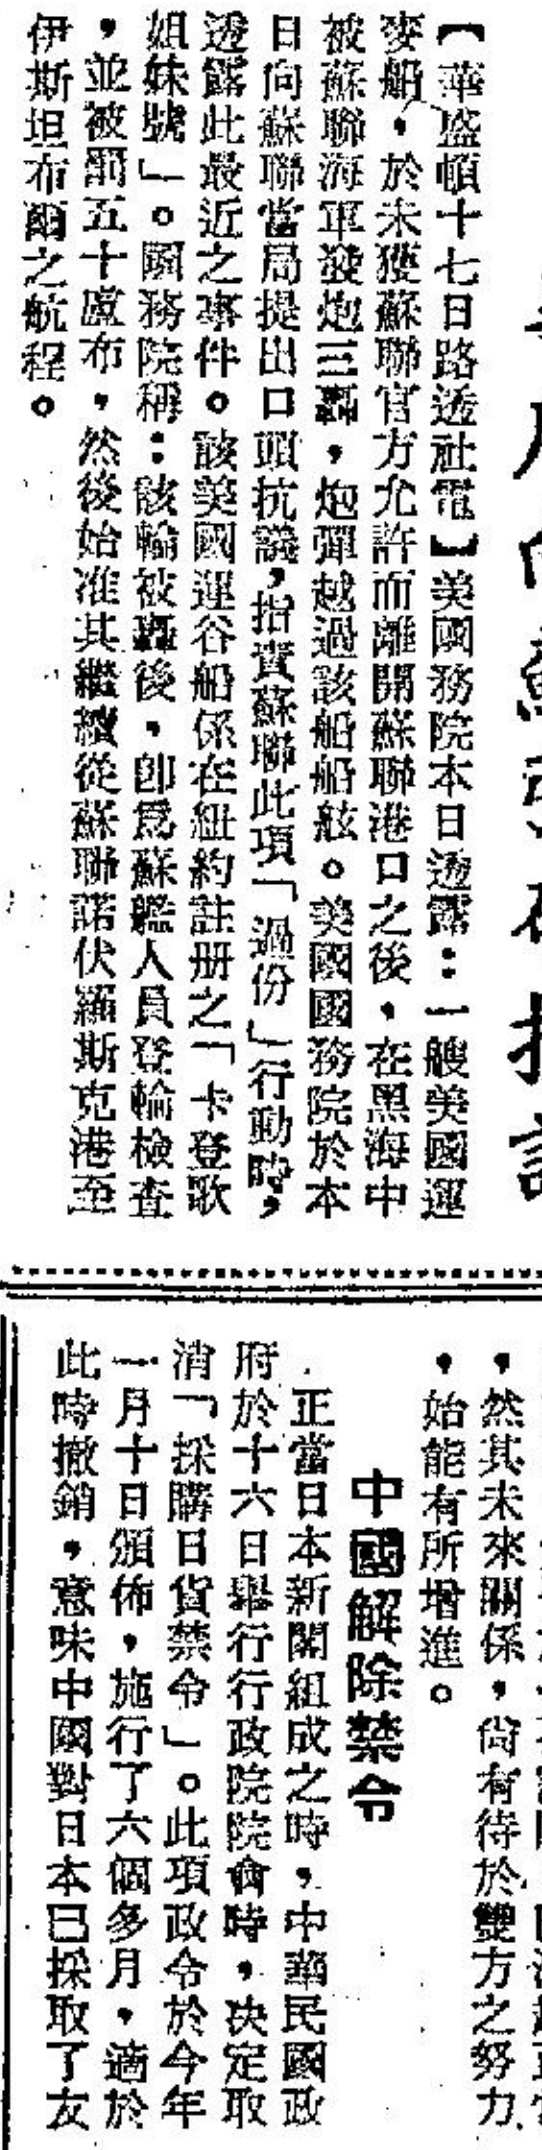 【華盛頓十七日路透社電】美國務院本日透露：一艘美國運
麥船，於未獲蘇聯官方允許而離開蘇聯港口之後，在黑海中
被蘇聯海軍發炮三轟，炮彈越過該船船舷。美國國務院於本
日向蘇聯當局提出口頭抗議，指責蘇聯此項「過份」行動時，
透露此最近之事件。該美國運谷船係在紐約註册之「卡登歌
姐妹號」。國務院稱：該輪被轟後，卽爲蘇艦人員登輪檢查
，並被罰五十盧布，然後始准其繼續從蘇聯諾伏羅斯克港至
伊斯坦布爾之航程。
，然其未來關係，尙有待於雙方之努力
，始能有所增進。
中國解除禁令
正當日本新閣組成之時，中華民國政
府於十六日舉行行政院院會時，決定取
消「採購日貨禁令」。此項政令於今年
一月十日頒佈，施行了六個多月，適於
此時撤銷，意味中國對日本已採取了友